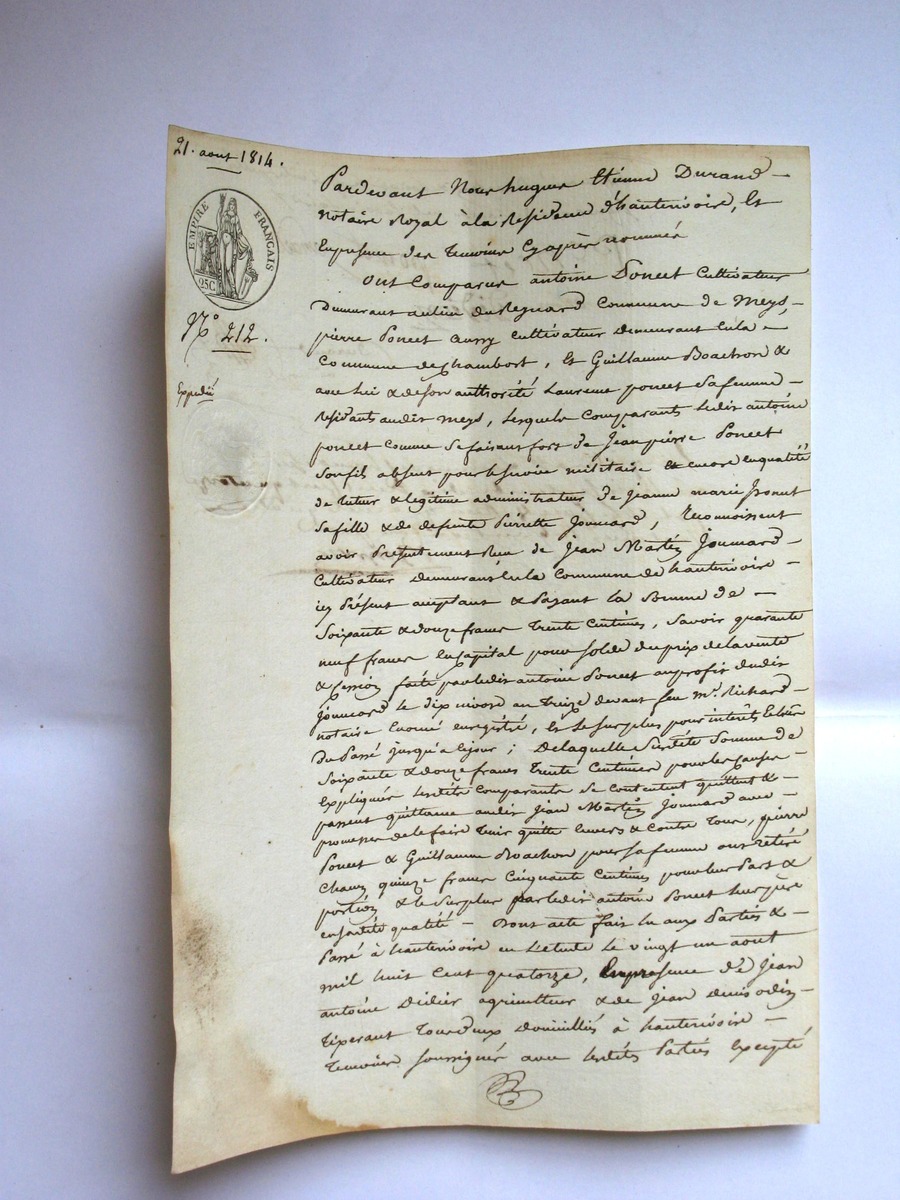 21. aout 1814.
EMPIRE FRANÇAIS
25C
N.° 212.
Expédié
Pardevant Nous hugues Etienne Durand -
notaire Royal à la Residence d'hauterivoire, Et
Enpresence des temoins Cyaprès nommés
Ont Comparus antoine Poncet Cultivateur
Demeurant aulieu du Regnard Commune de Meys,
pierre Poncet aussy Cultivateur demeurant En la -
Commune de Chambost, Et Guillaume Boachon &
avec lui & de son authorité Laurence poncet Sa femme -
Residants audit meys, lesquels Comparants ledit antoine
poncet Comme Se faisant fort de Jeanpierre Poncet
Son fils absent pour le Service militaire Et encore enqualité
de tuteur & legitime administrateur de jeanne marie poncet
Sa fille & de defunte Pierrette Joumard, Reconnoissent
avoir Présentement Reçu de Jean Martin Joumard -
Cultivateur demeurant En la Commune de hauterivoire -
icy Présent aceptant & Payant la Somme de -
Soixante & douze francs Trente Centimes, Savoir quarante
neuf francs En Capital pour Solde du prix de la vente
& Cession faite par ledit antoine Poncet au profit dudit
Joumard le dix nivose an treize devant feu m.e Richard -
notaire Enonné enregistré, Et le Surplus pour intérêts
Du Passé jusqu'a Cejour ; De laquelle Susdite Somme de
Soixante & douze francs Trente Centimes pour les Causes
Expliquées lesdits Comparants Se Contentent quittent & -
passent quittance audit Jean Martin Joumard avec -
promesse de le faire tenir quitte Envers & Contre Tous, pierre
Poncet & Guillaume Boachon pour Sa femme ont retiré
Chacun quinze francs Cinquante Centimes pour leur Part &
portion & le Surplus par ledit antoine Poncet leur père
en Susdite qualité - Dont acte fait lu aux Parties & -
Passé à hauterivoire en L'etude le vingt un aout
mil huit Cent quatorze, Enpresence de Jean
antoine Didier agriculteur & de Jean denis odin -
tixerant Tous deux domiciliés à hauterivoire -
temoins Soussignés avec lesdits Parties Excepté